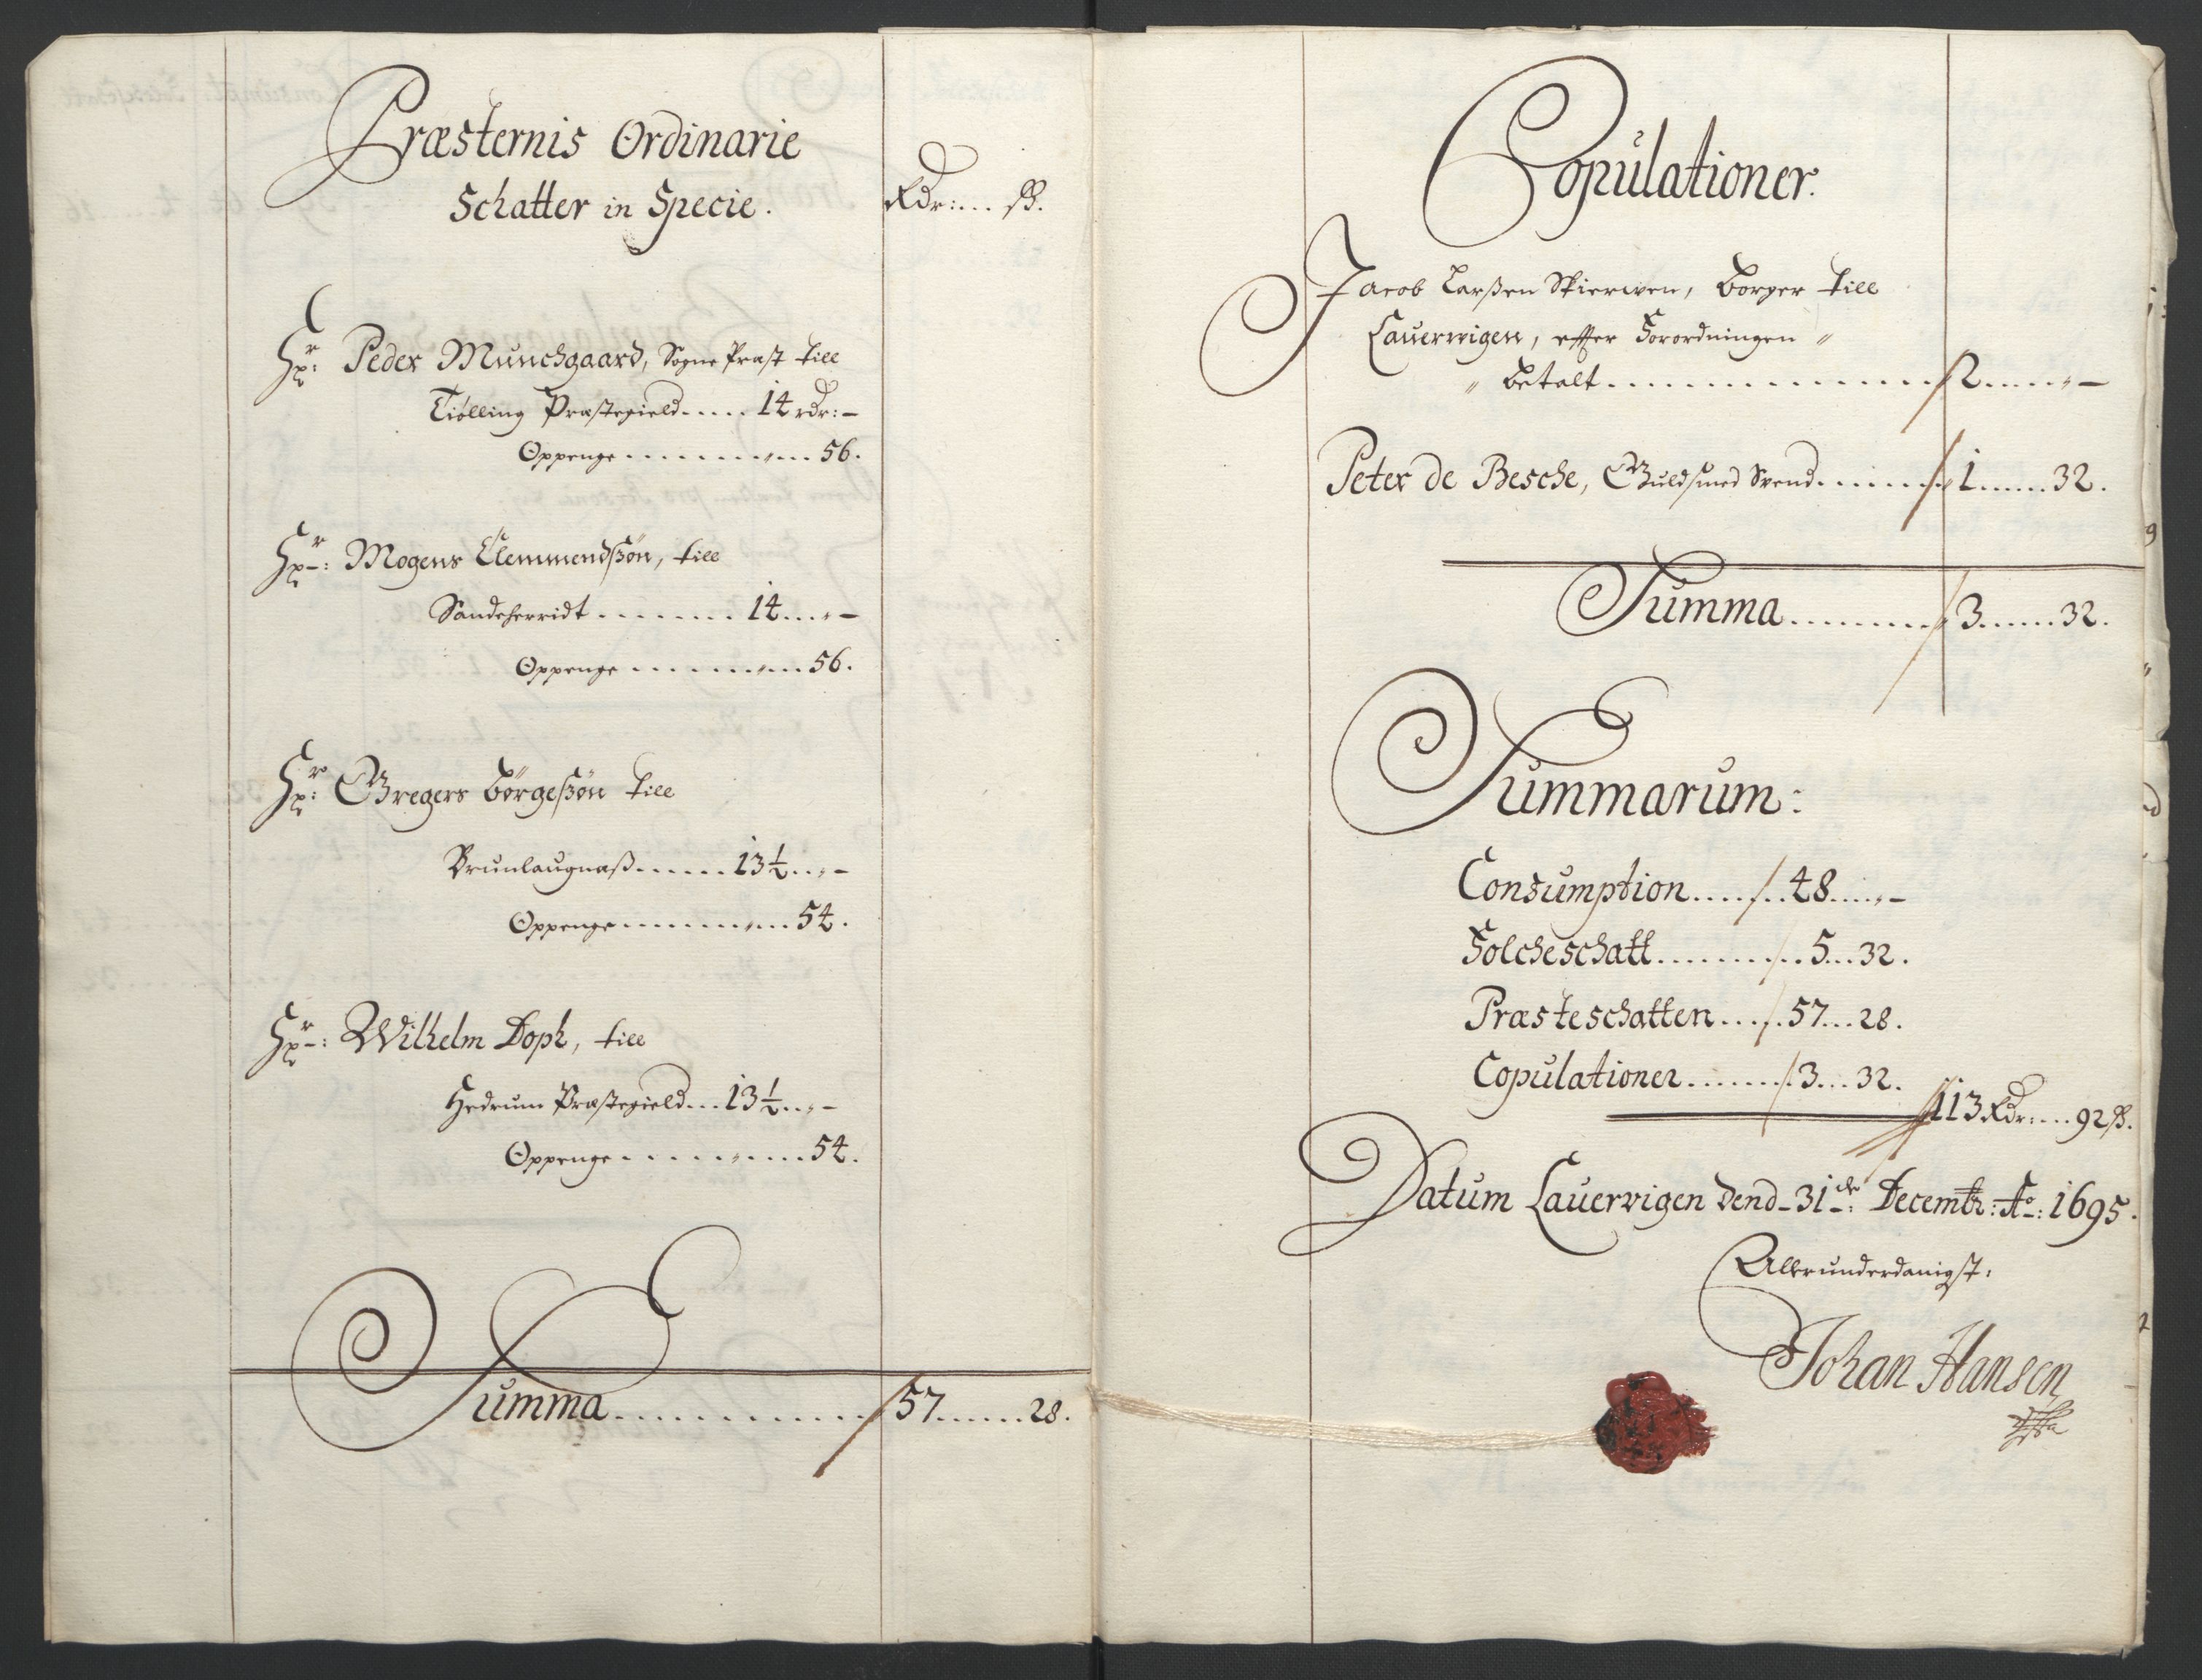 Præsternis Ordinarie
Schatter in Specie.
Rdr:... ß.
Hr: Peder Munchgaard, Sogne Præst till
Tiølling Præstegield..... 14 rdr: –
Oppenge ............ 56.
Hr: Mogens Clemmendsßøn, till
Sandeherridt ........ 14...„–
Oppenge ............ 56.
Hr: Gregers Børgesßøn till
Brunlaugnaß...... 13½..„–
Oppenge ............ 54.
Hr: Wilhelm Doph, till
Hedrum Præstegield... 13½..„–
Oppenge ............ 54.
Summa ............ 57 ....... 28.
Copulationer.
Jacob Larßen Skierwen, Borger till
Lauervigen, efter Forordningen „
„ betalt ............ 2 ....„–
Peter de Besche, Guldsmed Svend ....... 1 ..... 32.
Summa ......... 3 ...... 32.
Summarum:
Consumption ..... 48 ....„–
Folcheschatt ......... 5 ... 32.
Præsteschatten ..... 57 ... 28.
Copulationer ........ 3 ... 32.
113 Rdr: ... 92 ß.
Datum Lauervigen dend 31de: Decembr: Ao: 1695.
Allerunderdanigst:
Johan Hansen